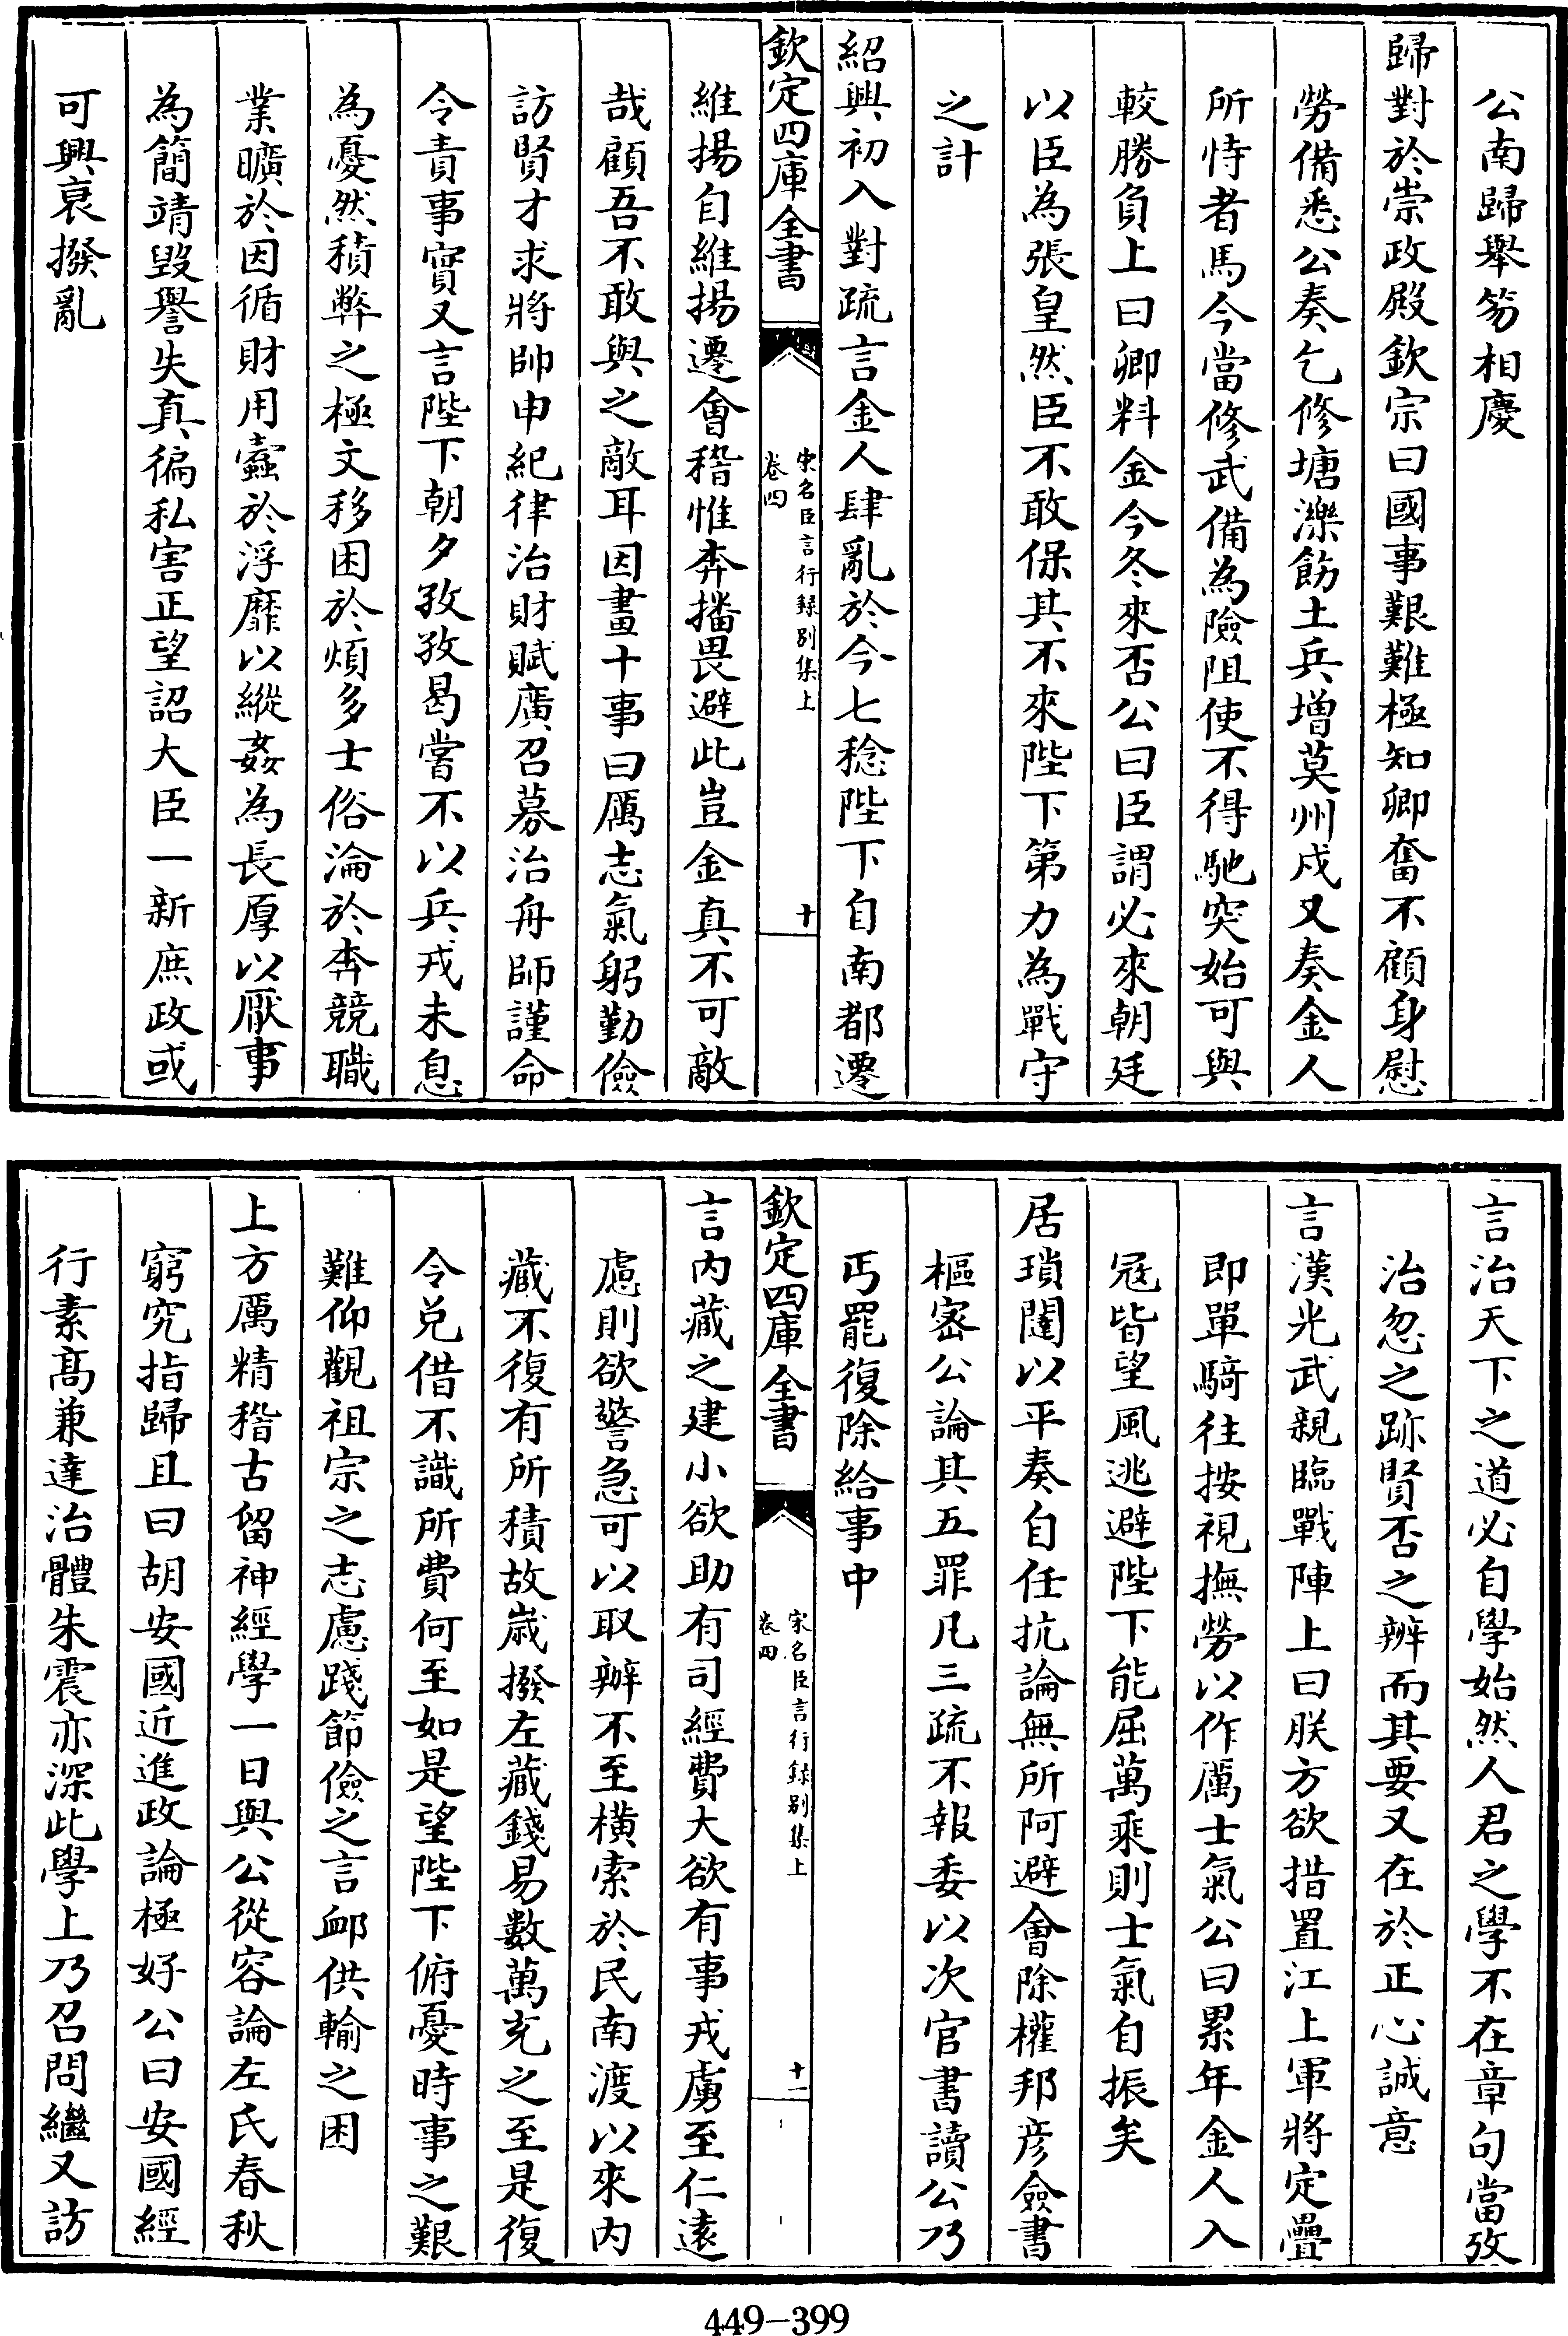 公南歸舉笏相慶
歸對於崇政殿欽宗曰國事艱難極知卿奮不顧身慰
勞備悉公奏乞修塘濼飭土兵增莫州戍又奏金人
所恃者馬今當修武備為險阻使不得馳突始可與
較勝負上曰卿料金今冬來否公曰臣謂必來朝廷
以臣為張皇然臣不敢保其不來陛下第力為戰守
之計
紹興初入對疏言金人肆亂於今七稔陛下自南都遷
欽定四庫全書
宋名臣言行録别集上
卷四
十
維揚自維揚遷會稽惟奔播畏避此豈金真不可敵
哉顧吾不敢與之敵耳因畫十事曰厲志氣躬勤儉
訪賢才求將帥申紀律治財賦廣召募治舟師謹命
令責事實又言陛下朝夕孜孜曷嘗不以兵戎未息
為憂然積弊之極文移困於煩多士俗淪於奔競職
業曠於因循財用蠹於浮靡以縱姦為長厚以厭事
為簡靖毀譽失真徧私害正望詔大臣一新庶政或
可興衰撥亂
言治天下之道必自學始然人君之學不在章句當攷
治忽之跡賢否之辨而其要又在於正心誠意
言漢光武親臨戰陣上曰朕方欲措置江上軍將定疊
即單騎往按視撫勞以作厲士氣公曰累年金人入
冦皆望風逃避陛下能屈萬乘則士氣自振矣
居瑣闥以平奏自任抗論無所阿避會除權邦彦僉書
樞密公論其五罪凡三疏不報委以次官書讀公乃
丐罷復除給事中
欽定四庫全書
宋名臣言行録别集上
卷四
十一
言內藏之建小欲助有司經費大欲有事戎虜至仁遠
慮則欲警急可以取辦不至橫索於民南渡以來內
藏不復有所積故歲撥左藏錢易數萬充之至是復
令兌借不識所費何至如是望陛下俯憂時事之艱
難仰觀祖宗之志慮踐節儉之言䘏供輸之困
上方厲精稽古留神經學一日與公從容論左氏春秋
窮究指歸且曰胡安國近進政論極好公曰安國經
行素高兼達治體朱震亦深此學上乃召問繼又訪
449-399